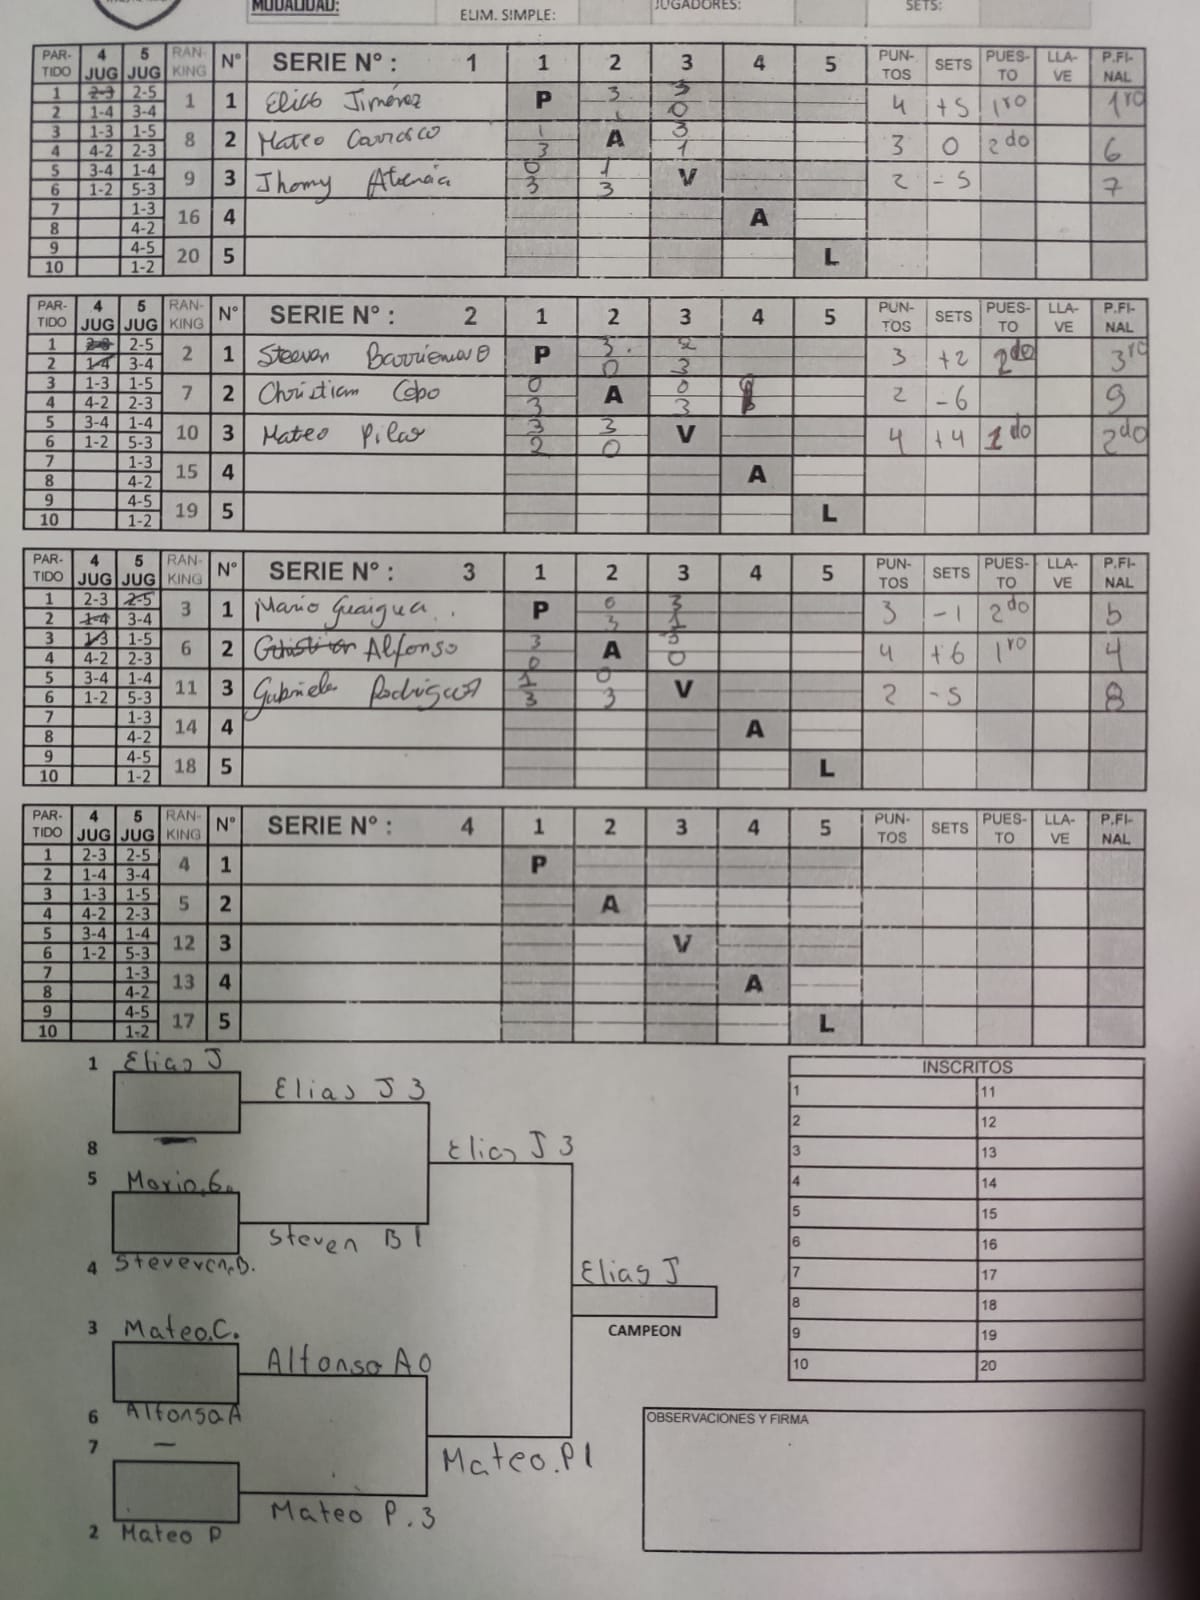 MODALIDAD:
ELIM. SIMPLE:
JUGADORES:
SETS:
PAR-TIDO 4 JUG 5 JUG RAN-KING N° SERIE N° : 1 1 2 3 4 5 PUN-TOS SETS PUES-TO LLA-VE P.FI-NAL
1 2-3 2-5 1 1 Elias Jiménez P 3 3 4 +5 1ro 1ro
2 1-4 3-4 0
3 1-3 1-5 8 2 Mateo Carrasco 1 A 3 3 0 2do 6
4 4-2 2-3 3 1
5 3-4 1-4 9 3 Jhomy Atencia 0 1 V 2 -5 7
6 1-2 5-3 3 3
7 1-3 16 4 A
8 4-2
9 4-5 20 5 L
10 1-2
PAR-TIDO 4 JUG 5 JUG RAN-KING N° SERIE N° : 2 1 2 3 4 5 PUN-TOS SETS PUES-TO LLA-VE P.FI-NAL
1 2-3 2-5 2 1 Steevan Barrionuevo P 3 2 3 +2 2do 3ro
2 1-4 3-4 0 3
3 1-3 1-5 7 2 Christian Cobo 0 A 0 2 -6 9
4 4-2 2-3 3 3
5 3-4 1-4 10 3 Mateo Pilar 3 3 V 4 +4 1do 2do
6 1-2 5-3 2 0
7 1-3 15 4 A
8 4-2
9 4-5 19 5 L
10 1-2
PAR-TIDO 4 JUG 5 JUG RAN-KING N° SERIE N° : 3 1 2 3 4 5 PUN-TOS SETS PUES-TO LLA-VE P.FI-NAL
1 2-3 2-5 3 1 Mario Guaigua P 0 3 3 -1 2do 5
2 1-4 3-4 3 1
3 1-3 1-5 6 2 Alfonso 3 A 3 4 +6 1ro 4
4 4-2 2-3 0 0
5 3-4 1-4 11 3 Gabriela Rodriguez 1 0 V 2 -5 8
6 1-2 5-3 3 3
7 1-3 14 4 A
8 4-2
9 4-5 18 5 L
10 1-2
PAR-TIDO 4 JUG 5 JUG RAN-KING N° SERIE N° : 4 1 2 3 4 5 PUN-TOS SETS PUES-TO LLA-VE P.FI-NAL
1 2-3 2-5 4 1 P
2 1-4 3-4
3 1-3 1-5 5 2 A
4 4-2 2-3
5 3-4 1-4 12 3 V
6 1-2 5-3
7 1-3 13 4 A
8 4-2
9 4-5 17 5 L
10 1-2
1 Elias J
Elias J 3
8 —
Elias J 3
5 Mario.G.
Steven B 1
4 Steveven.B.
Elias J
CAMPEON
3 Mateo.C.
Alfonso A 0
6 Alfonso A
7 —
Mateo.P 1
Mateo P. 3
2 Mateo P
INSCRITOS
1 11
2 12
3 13
4 14
5 15
6 16
7 17
8 18
9 19
10 20
OBSERVACIONES Y FIRMA